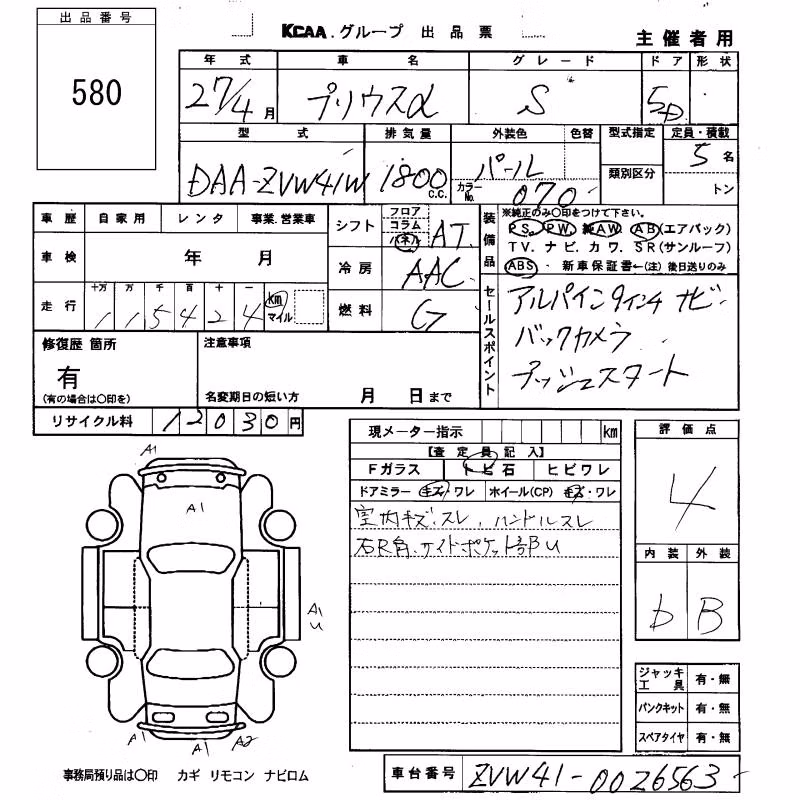 出品番号
580
KCAA.グループ 出品票
主催者用
年式 車名 グレード ドア 形状
27/4月 プリウスα S 5D
型式 排気量 外装色 色替 型式指定 定員・積載
DAA-ZVW41W 1800 C.C. パール 類別区分 5名
カラーNo. 070 トン
車歴 自家用 レンタ 事業.営業車
シフト フロア コラム パネル AT
車検 年 月
冷房 AAC
走行 十万 万 千 百 十 一
115424 km マイル
燃料 G
装備品
※純正のみ〇印をつけて下さい。
PS. PW. 純AW. AB(エアバック)
TV. ナビ. カワ. SR(サンルーフ)
ABS. 新車保証書←(注) 後日送りのみ
セールスポイント
アルパイン9インチナビ
バックカメラ
プッシュスタート
修復歴 箇所
有
(有の場合は〇印を)
注意事項
名変期日の短い方 月 日まで
リサイクル料 12030円
現メーター指示 km
【査定員記入】
Fガラス トビ石 ヒビワレ
ドアミラー キズ・ワレ ホイール(CP) キズ・ワレ
室内キズ、スレ、ハンドルスレ
右R角、サイドポケット部U
評価点
4
内装 外装
b B
ジャッキ工具 有・無
パンクキット 有・無
スペアタイヤ 有・無
A1
A1
A1
U
A1 A1 A2
事務局預り品は〇印 カギ リモコン ナビロム
車台番号 ZVW41-0026563